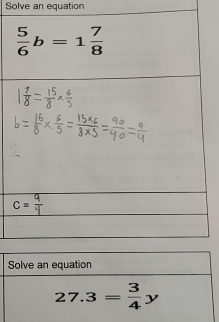 Solve an equation
5/6 b = 1 7/8
1 7/8 = 15/8 × 6/5
b = 15/8 × 6/5 = 15×6/8×5 = 90/40 = 9/4
C = 9/4
Solve an equation
27.3 = 3/4 y